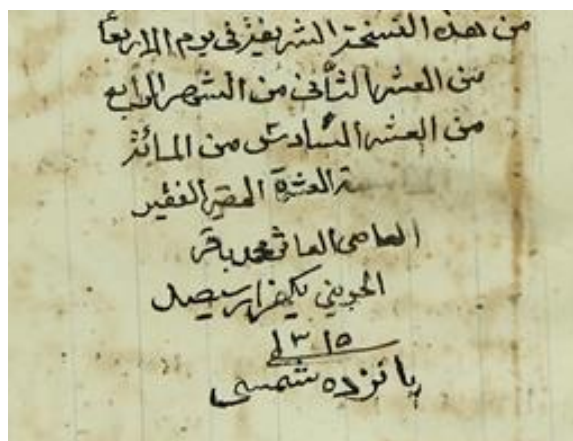 من هذه النسخة الشريفة في يوم الاربعا
من العشر الثاني من الشهر الرابع
من العشر السادس من المائة
العشرة الحقير الفقير
العاصي محمد باقر
الجويني يكهزار سيصد
١٣١٥
پانزده شمسى